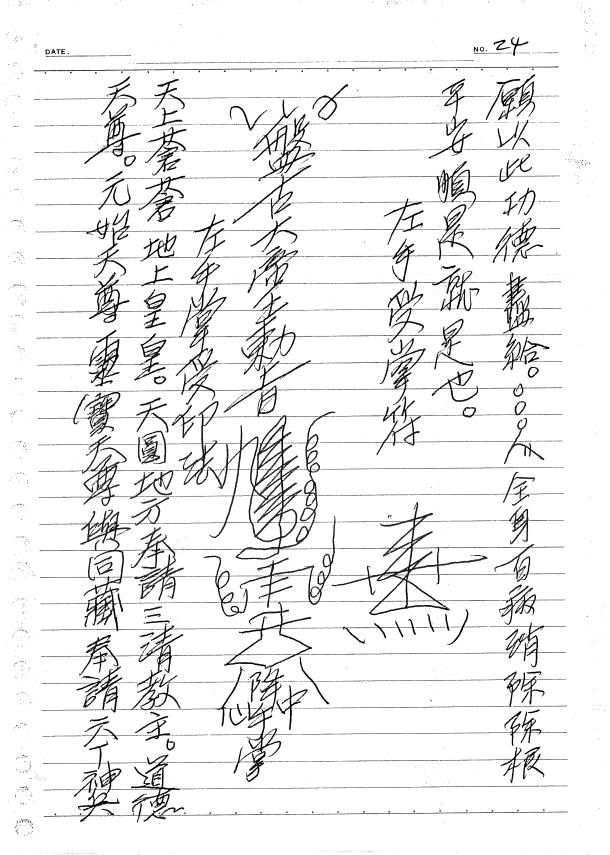 DATE.
NO. 24
願以此功德盡給。○○○人全身百病消除除根
平安順是就是也。
左手受掌符
盤古大帝主勅旨
左手掌受印法
天上蒼蒼地上皇皇。天圓地方奉請三清教主。道德
天尊。元始天尊靈寶天尊與回藏奉請六丁神兵